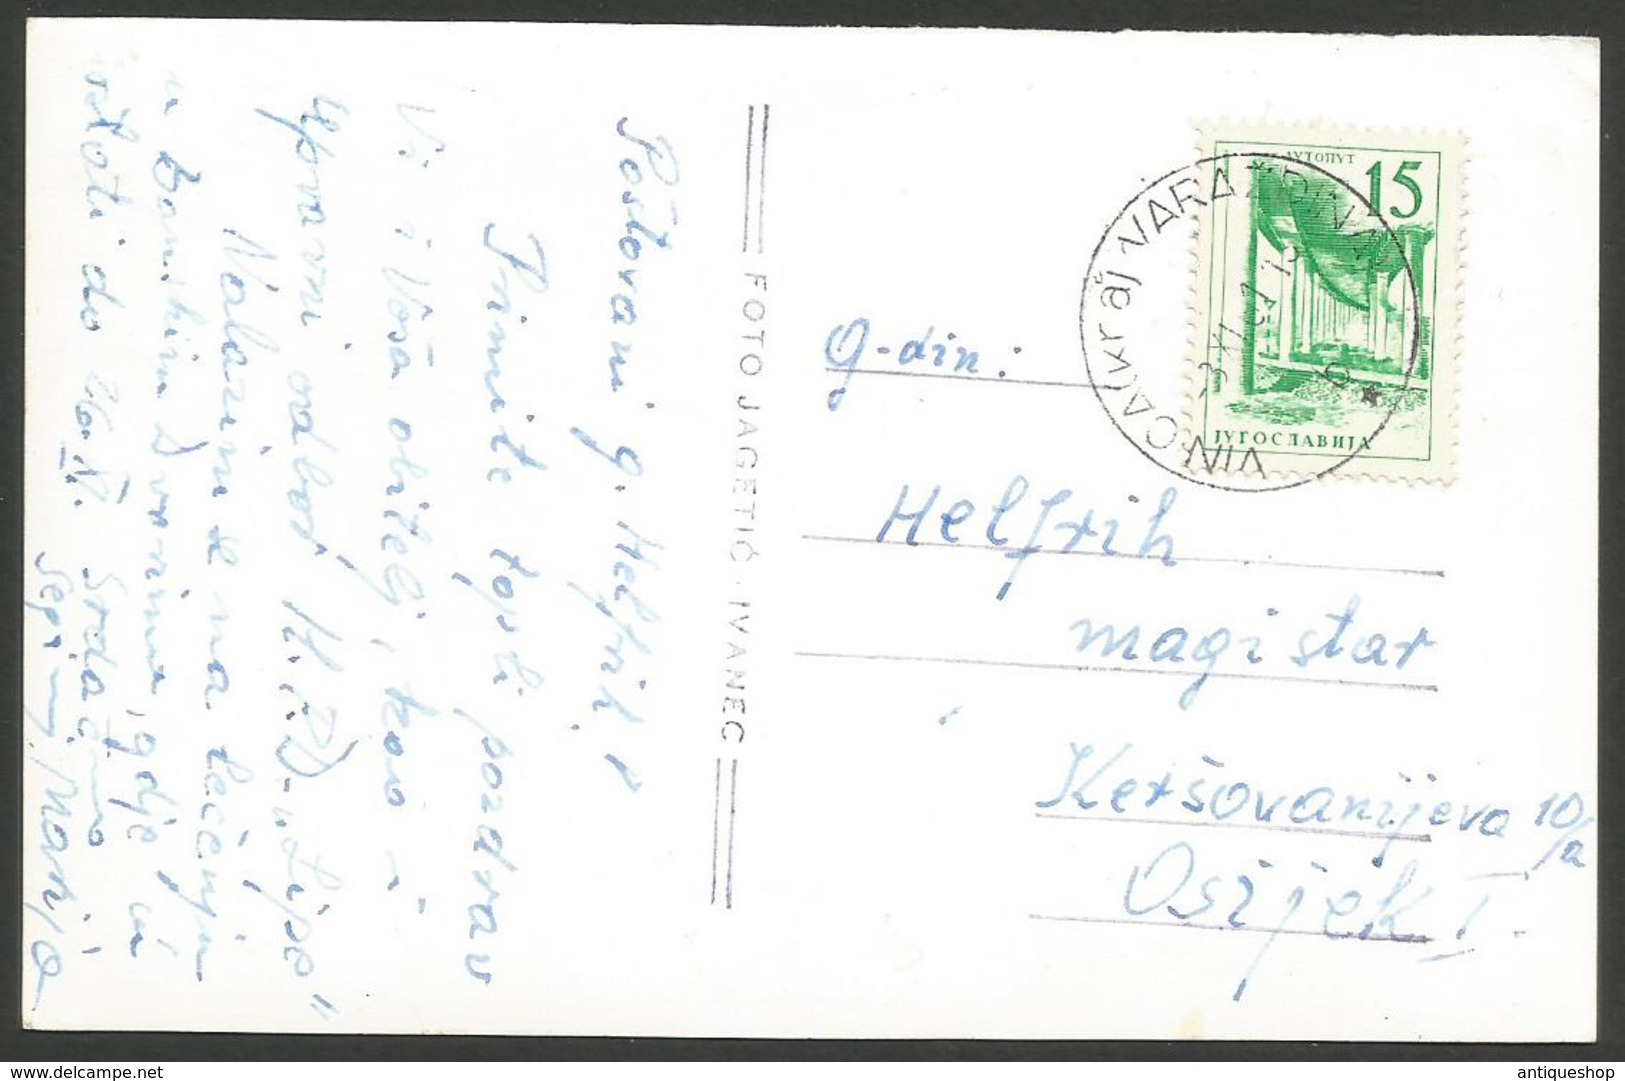 Poštovani g. Helfrih!
Primite topli pozdrav
Vi i Vaša obitelj, kao i
upravni odbor H.P.D. „Lipa"
Nalazim se na lečenju
u banskim Dvorima, gdje ću
ostati do 26. XI. Srdačno
Marija
FOTO JAGETIĆ · IVANEC
АУТОПУТ
15
ЈУГОСЛАВИЈА
VINICA (kraj VARAŽDINA)
G-din:
Helfrih
magistar
Keršovanijeva 10/a
Osijek I.
delcampe.net
antiqueshop